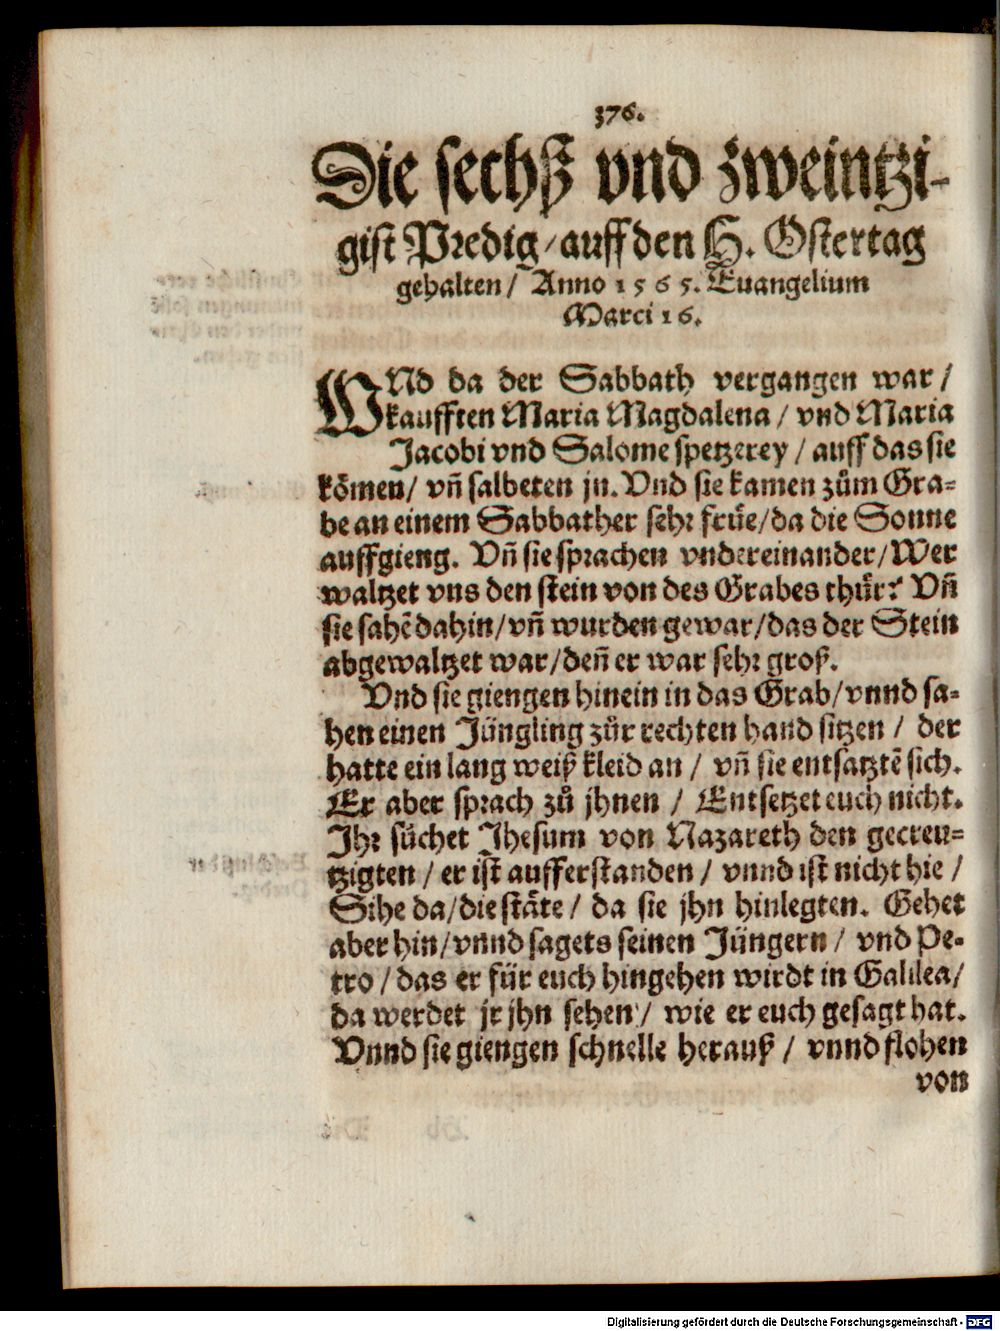 376.
Die sechß vnd zweintzi-
gist Predig / auff den H. Ostertag
gehalten / Anno 1565. Euangelium
Marci 16.
WNd da der Sabbath vergangen war /
kaufften Maria Magdalena / vnd Maria
Jacobi vnd Salome spetzerey / auff das sie
kõmen / vñ salbeten jn. Vnd sie kamen zům Gra-
be an einem Sabbather sehr früe / da die Sonne
auffgieng. Vñ sie sprachen vndereinander / Wer
waltzet vns den stein von des Grabes thür? Vñ
sie sahẽ dahin / vñ wurden gewar / das der Stein
abgewaltzet war / deñ er war sehr groß.
Vnd sie giengen hinein in das Grab / vnnd sa-
hen einen Jüngling zůr rechten hand sitzen / der
hatte ein lang weiß kleid an / vñ sie entsatztẽ sich.
Er aber sprach zů jhnen / Entsetzet euch nicht.
Jhr sůchet Jhesum von Nazareth den gecreu-
tzigten / er ist aufferstanden / vnnd ist nicht hie /
Sihe da / die stäte / da sie jhn hinlegten. Gehet
aber hin / vnnd sagets seinen Jüngern / vnd Pe-
tro / das er für euch hingehen wirdt in Galilea /
da werdet jr jhn sehen / wie er euch gesagt hat.
Vnnd sie giengen schnelle herauß / vnnd flohen
von
Digitalisierung gefördert durch die Deutsche Forschungsgemeinschaft - DFG